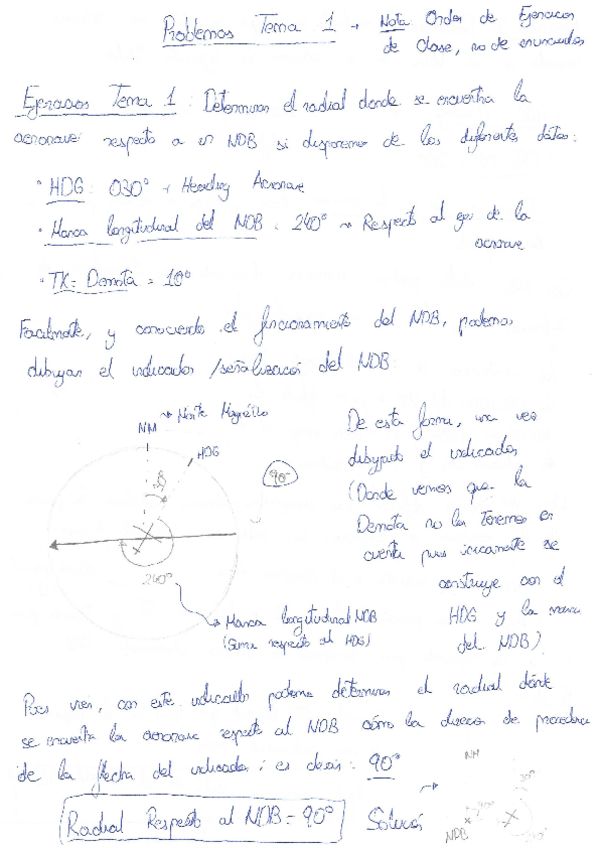 Problemas Tema 1 → Nota Orden de Ejercicios
de Clase, no de enunciados
Ejercicios Tema 1: Determinar el radial donde se encuentra la
aeronave respecto a un NDB si disponemos de los diferentes datos:
· HDG: 030° → Heading Aeronave
· Marca longitudinal del NDB: 240° → Respecto al eje de la
aeronave
· TK = Derrota = 10°
Facilmente, y conociendo el funcionamiento del NDB, podemos
dibujar el indicador/señalización del NDB:
NM → Norte Magnético
HDG
30°
90°
240°
→ Marca longitudinal NDB
(Suma respecto al HDG)
De esta forma, una vez
dibujado el indicador
(Donde vemos que la
Derrota no la tenemos en
cuenta pues unicamente se
construye con el
HDG y la marca
del NDB)
Pues bien, con este indicador podemos determinar el radial dónde
se encuentra la aeronave respecto al NDB cómo la dirección de procedencia
de la flecha del indicador; es decir: 90°
Radial Respecto al NDB = 90°
Solución
→
NM
30°
NDB